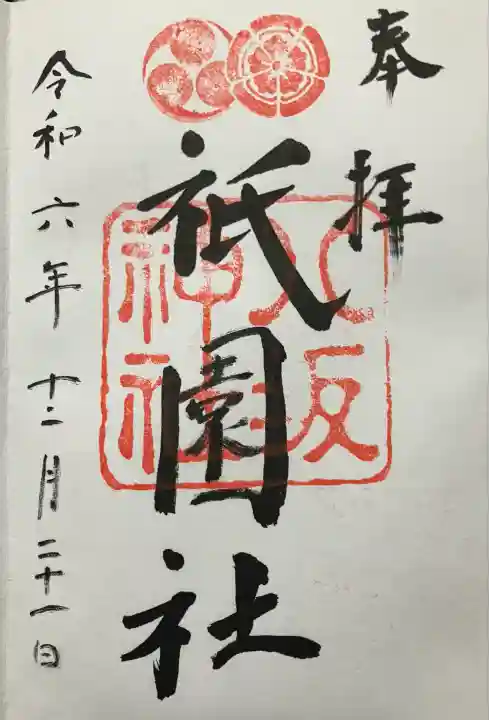 奉拝
祇園社
八坂
神社
令和六年十二月二十一日